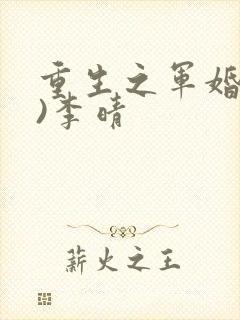 重生之军婚
)李晴
薪火之王